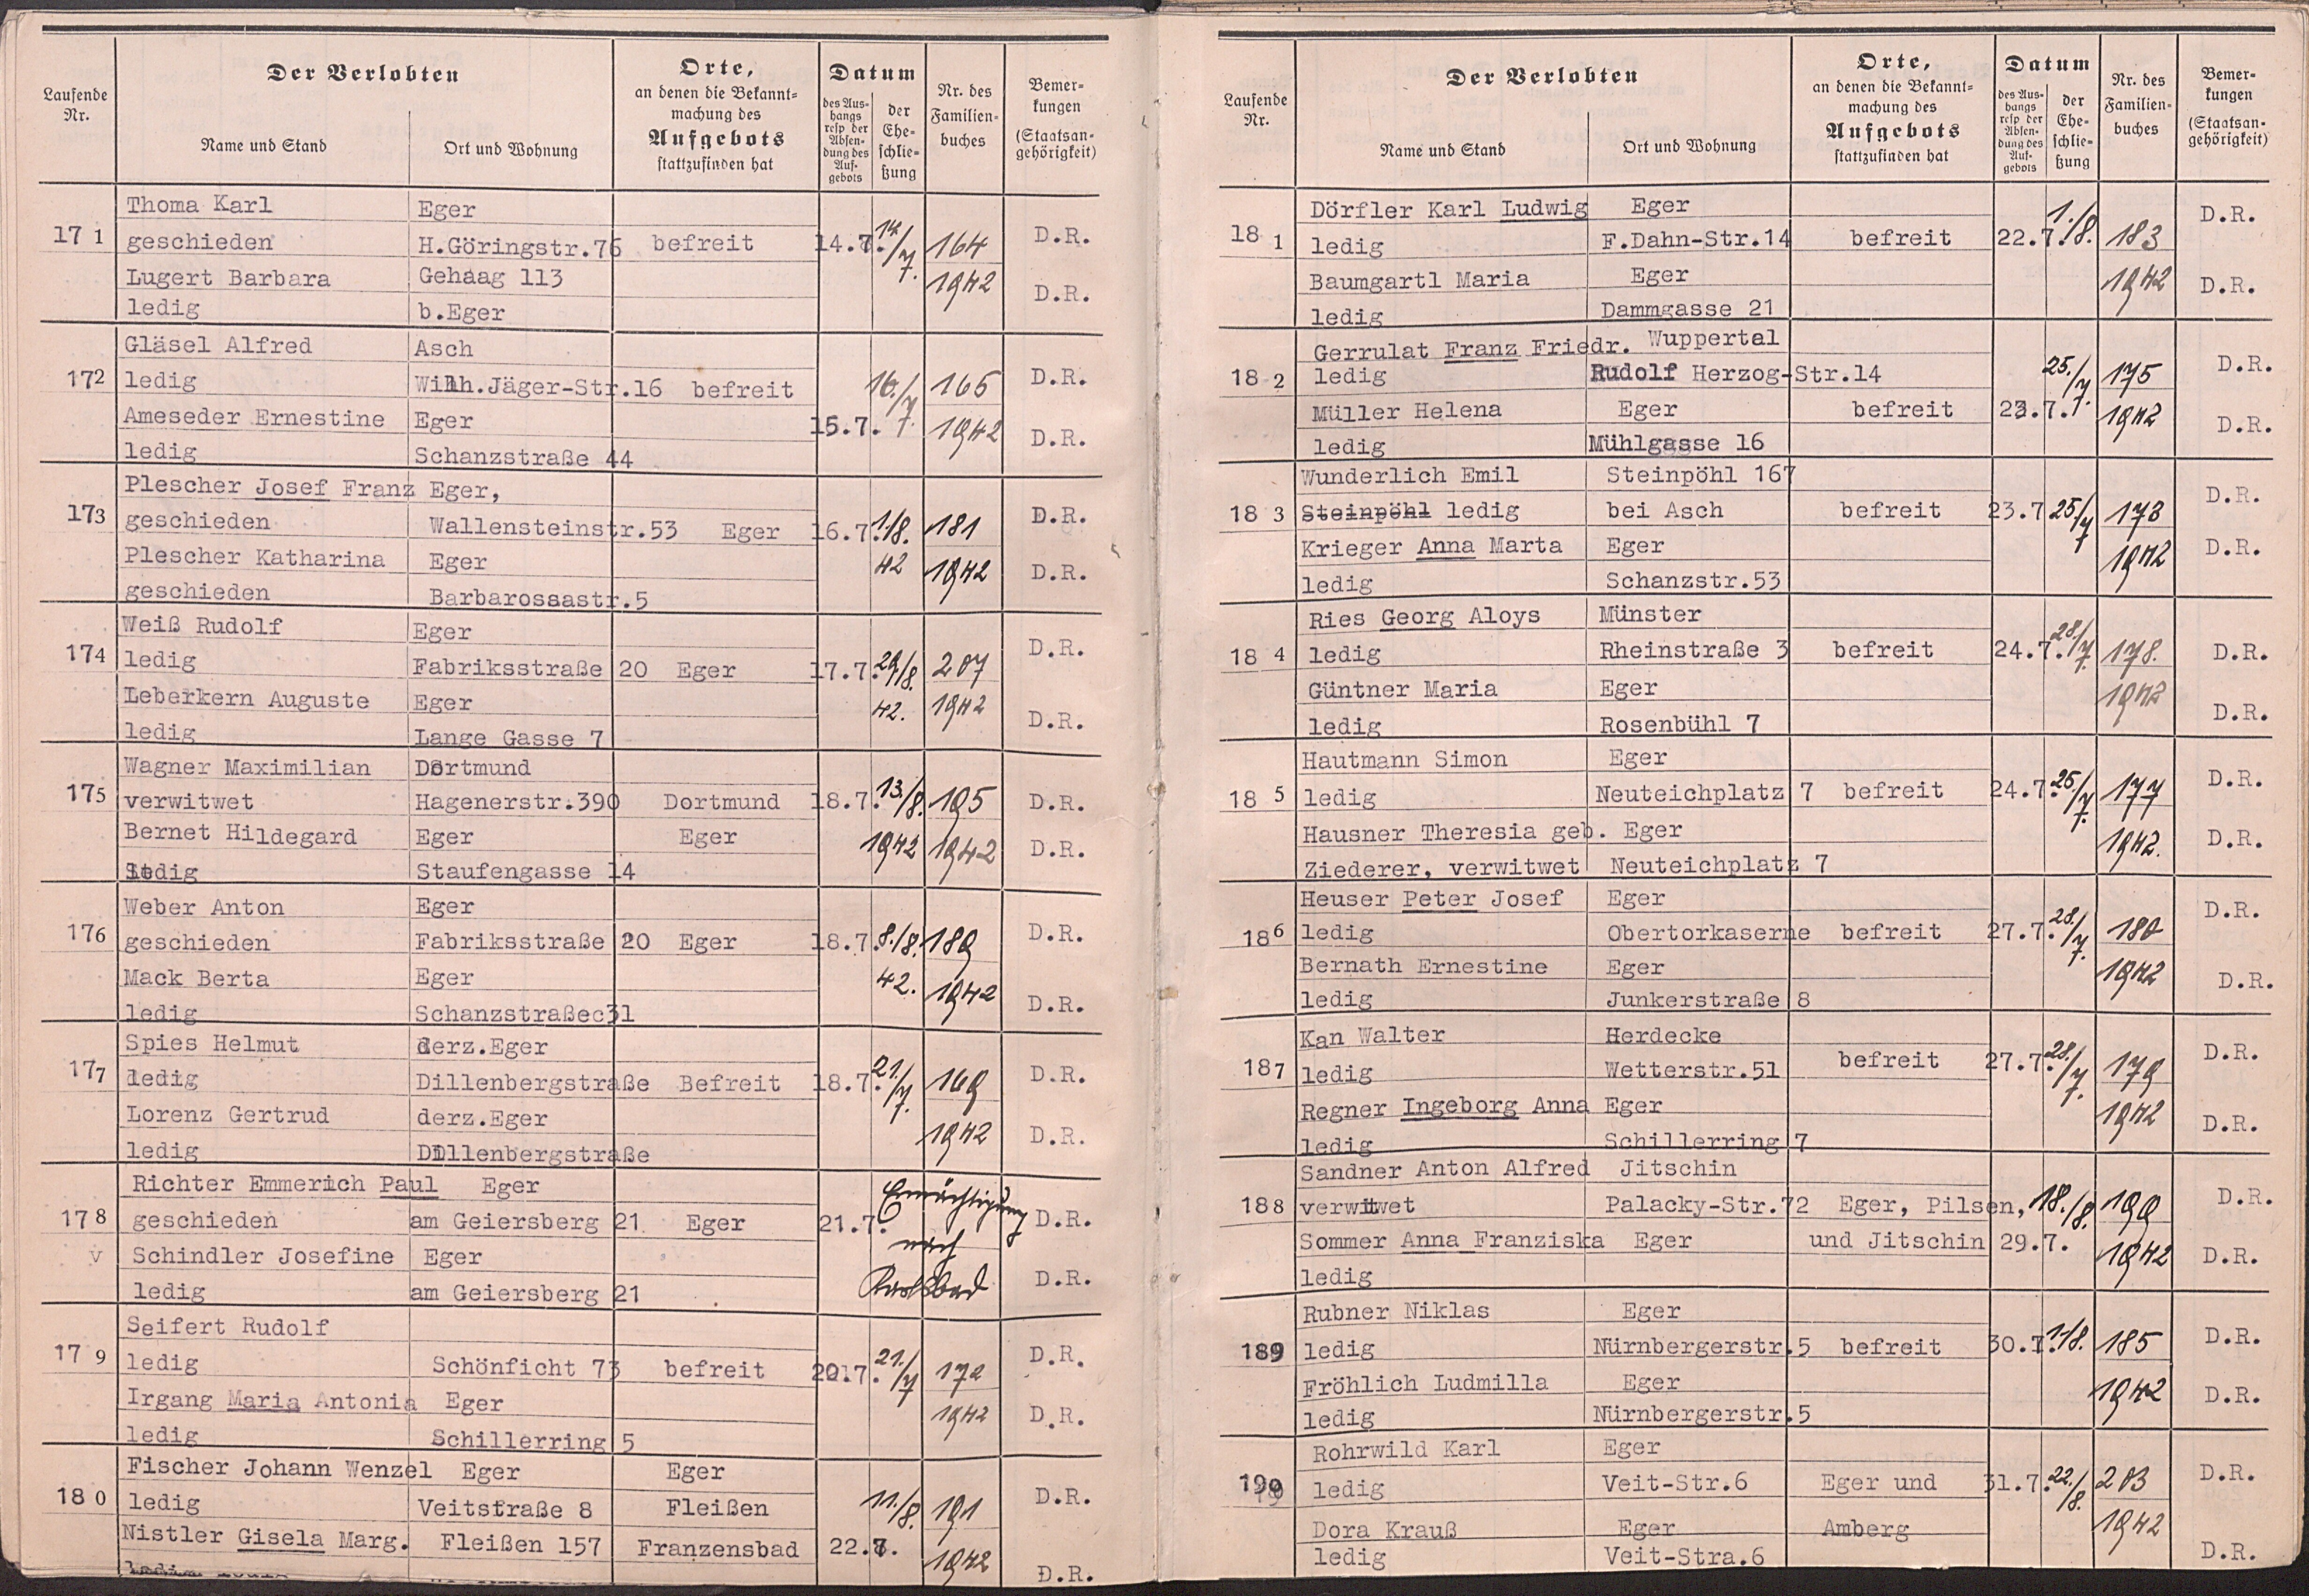 Laufende Nr.
Der Verlobten
Name und Stand
Ort und Wohnung
Orte, an denen die Bekanntmachung des Aufgebots stattzufinden hat
Datum
des Aushangs resp der Absendung des Aufgebots
der Eheschließung
Nr. des Familienbuches
Bemerkungen (Staatsangehörigkeit)
Thoma Karl Eger
171 geschieden H.Göringstr.76 befreit 14.7. 14./7. 164 D.R.
Lugert Barbara Gehaag 113 1942 D.R.
ledig b.Eger
Gläsel Alfred Asch
172 ledig Wilh.Jäger-Str.16 befreit 16./7. 165 D.R.
Ameseder Ernestine Eger 15.7. 1942 D.R.
ledig Schanzstraße 44
Plescher Josef Franz Eger,
173 geschieden Wallensteinstr.53 Eger 16.7. 1./8. 181 D.R.
Plescher Katharina Eger 42 1942 D.R.
geschieden Barbarossastr.5
Weiß Rudolf Eger
174 ledig Fabriksstraße 20 Eger 17.7. 29./8. 207 D.R.
Leberkern Auguste Eger 42. 1942 D.R.
ledig Lange Gasse 7
Wagner Maximilian Dortmund
175 verwitwet Hagenerstr.390 Dortmund 18.7. 13./8. 195 D.R.
Bernet Hildegard Eger Eger 1942 1942 D.R.
ledig Staufengasse 14
Weber Anton Eger
176 geschieden Fabriksstraße 20 Eger 18.7. 8./8. 189 D.R.
Mack Berta Eger 42. 1942
ledig Schanzstraßec31 D.R.
Spies Helmut derz.Eger
177 ledig Dillenbergstraße Befreit 18.7. 21./7. 169 D.R.
Lorenz Gertrud derz.Eger 1942 D.R.
ledig Dillenbergstraße
Richter Emmerich Paul Eger Ermächtigung
178 geschieden am Geiersberg 21 Eger 21.7. D.R.
v Schindler Josefine Eger nach
ledig am Geiersberg 21 Karlsbad D.R.
Seifert Rudolf
179 ledig Schönficht 73 befreit 20.7. 21./7 172 D.R.
Irgang Maria Antonia Eger 1942 D.R.
ledig Schillerring 5
Fischer Johann Wenzel Eger Eger
180 ledig Veitstraße 8 Fleißen 11./8. 191 D.R.
Nistler Gisela Marg. Fleißen 157 Franzensbad 22.7. 1942
D.R.
Laufende Nr.
Der Verlobten
Name und Stand
Ort und Wohnung
Orte, an denen die Bekanntmachung des Aufgebots stattzufinden hat
Datum
des Aushangs resp der Absendung des Aufgebots
der Eheschließung
Nr. des Familienbuches
Bemerkungen (Staatsangehörigkeit)
Dörfler Karl Ludwig Eger D.R.
181 ledig F.Dahn-Str.14 befreit 22.7. 1./8. 183
Baumgartl Maria Eger 1942 D.R.
ledig Dammgasse 21
Gerrulat Franz Friedr. Wuppertal
182 ledig Rudolf Herzog-Str.14 25./7. 175 D.R.
Müller Helena Eger befreit 23.7. 1942 D.R.
ledig Mühlgasse 16
Wunderlich Emil Steinpöhl 167 D.R.
183 Steinpöhl ledig bei Asch befreit 23.7 25/7 173
Krieger Anna Marta Eger 1942 D.R.
ledig Schanzstr.53
Ries Georg Aloys Münster
184 ledig Rheinstraße 3 befreit 24.7. 28./7. 178. D.R.
Güntner Maria Eger 1942
ledig Rosenbühl 7 D.R.
Hautmann Simon Eger D.R.
185 ledig Neuteichplatz 7 befreit 24.7. 25./7. 177
Hausner Theresia geb. Eger 1942. D.R.
Ziederer, verwitwet Neuteichplatz 7
Heuser Peter Josef Eger D.R.
186 ledig Obertorkaserne befreit 27.7. 28./7. 180
Bernath Ernestine Eger 1942 D.R.
ledig Junkerstraße 8
Kan Walter Herdecke
187 ledig Wetterstr.51 befreit 27.7. 28./7. 179 D.R.
Regner Ingeborg Anna Eger 1942 D.R.
ledig Schillerring 7
Sandner Anton Alfred Jitschin
188 verwitwet Palacky-Str.72 Eger, Pilsen, 18./8. 199 D.R.
Sommer Anna Franziska Eger und Jitschin 29.7. 1942 D.R.
ledig
Rubner Niklas Eger
189 ledig Nürnbergerstr.5 befreit 30.7. 1./8. 185 D.R.
Fröhlich Ludmilla Eger 1942 D.R.
ledig Nürnbergerstr.5
Rohrwild Karl Eger
190 ledig Veit-Str.6 Eger und 31.7. 22./8. 203 D.R.
Dora Krauß Eger Amberg 1942
ledig Veit-Stra.6 D.R.